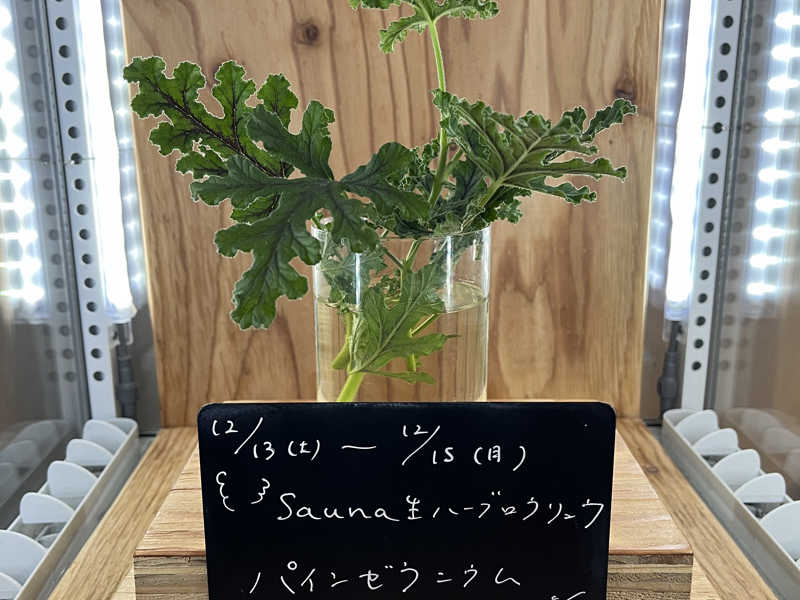 12/13(土)〜12/15(月)
Sauna生ハーブロウリュウ
パインゼラニウム